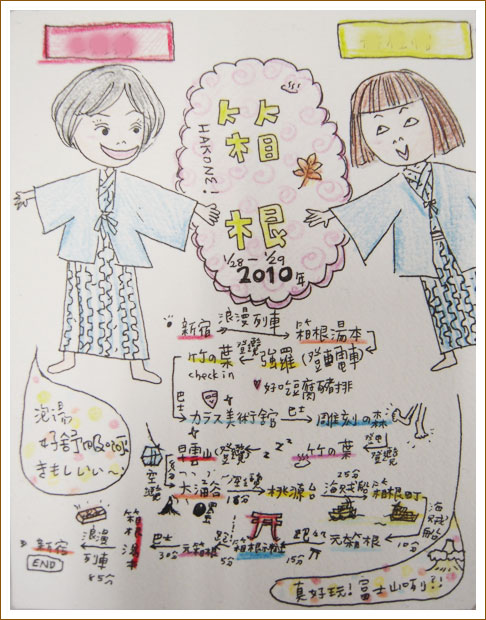 箱根
HAKONE!
1/28 - 1/29
2010年
新宿 浪漫列車 箱根湯本
竹の葉 登鐵 強羅 (登山電車)
check in
♡ 好吃豆腐豬排
巴士
ガラス美術館 巴士 雕刻の森
早雲山 (登鐵) zzz 竹の葉 登鐵
空纜
大涌谷 空纜 18分 桃源台 海賊船 25分 箱根町
海賊船 10分
元箱根
15分
箱根神社
5分
元箱根
巴士 30分
箱根湯本
浪漫列車 85分
新宿
END
泡湯
好舒服哦
きもしいい〜
真好玩!富士山咧?!